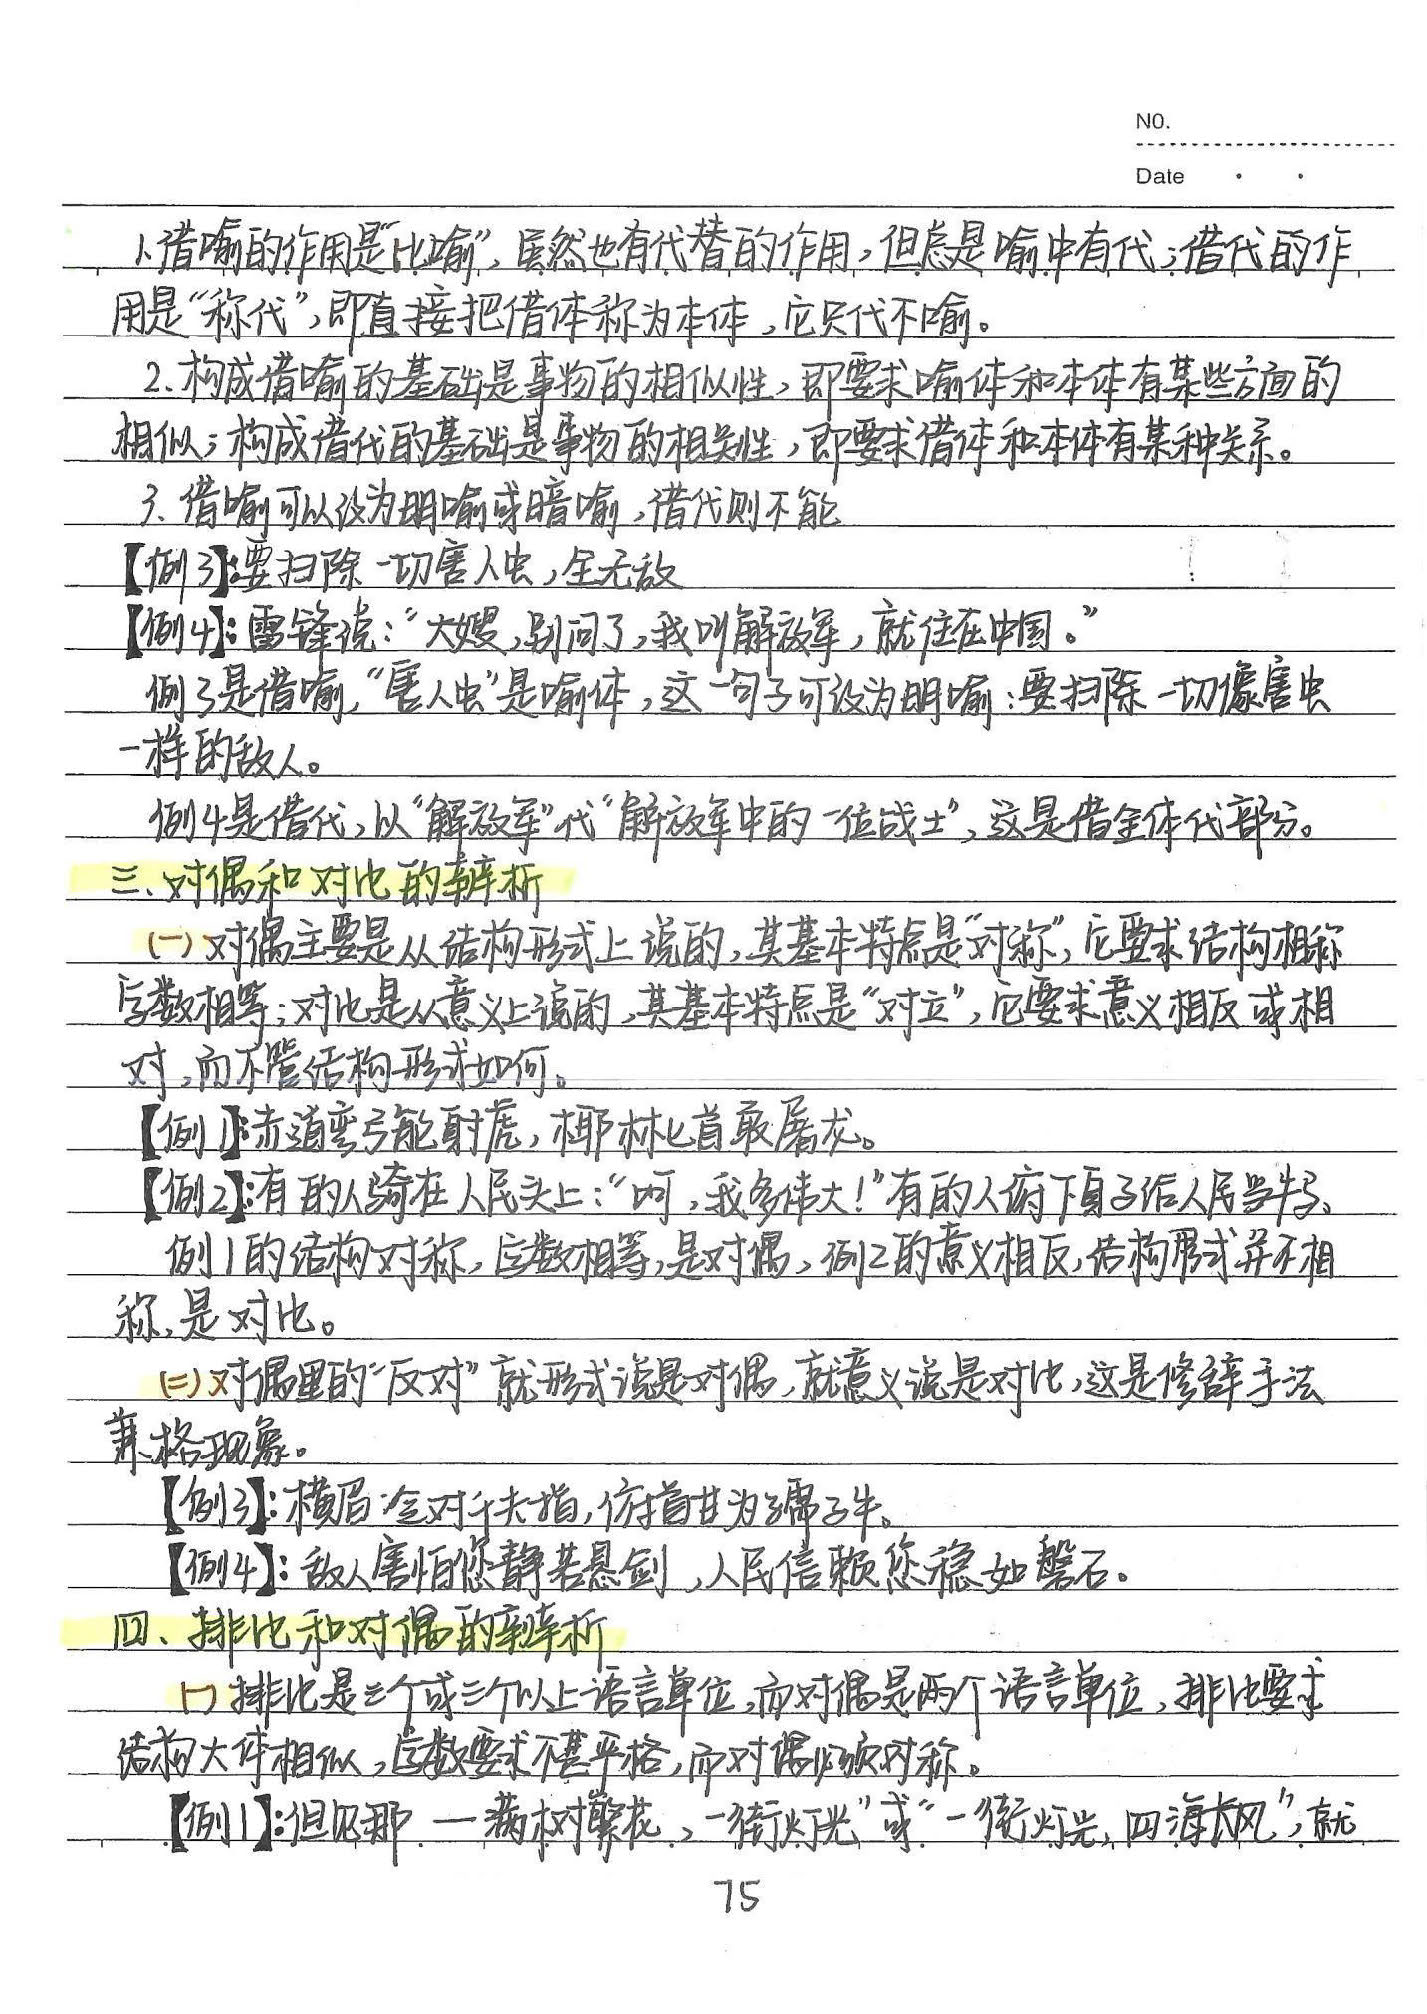 NO.
Date
1.借喻的作用是“比喻”,虽然也有代替的作用,但总是喻中有代;借代的作
用是“称代”,即直接把借体称为本体,它只代不喻。
2.构成借喻的基础是事物的相似性,即要求喻体和本体有某些方面的
相似;构成借代的基础是事物的相关性,即要求借体和本体有某种关系。
3.借喻可以改为明喻或暗喻,借代则不能
【例3】:要扫除一切害人虫,全无敌
【例4】:雷锋说:“大嫂,别问了,我叫解放军,就住在中国。”
例3是借喻,“害人虫”是喻体,这一句子可改为明喻:要扫除一切像害虫
一样的敌人。
例4是借代,以“解放军”代“解放军中的一位战士”,这是借全体代部分。
三、对偶和对比的辨析
(一)对偶主要是从结构形式上说的,其基本特点是“对称”,它要求结构相称
字数相等;对比是从意义上说的,其基本特点是“对立”,它要求意义相反或相
对,而不管结构形式如何。
【例1】:赤道弯弓能射虎,椰林匕首敢屠龙。
【例2】:有的人骑在人民头上:“呵,我多伟大!”有的人俯下身子给人民当牛马、
例1的结构对称,字数相等,是对偶,例2的意义相反,结构形式并不相
称,是对比。
(二)对偶里的“反对”就形式说是对偶,就意义说是对比,这是修辞手法
兼格现象。
【例3】:横眉冷对千夫指,俯首甘为孺子牛。
【例4】:敌人害怕您静若悬剑,人民信赖您稳如磐石。
四、排比和对偶的辨析
(一)排比是三个或三个以上语言单位,而对偶是两个语言单位,排比要求
结构大体相似,字数要求不甚严格,而对偶必须对称。
【例1】:但见那一满树繁花,一街灯光”或“一街灯光,四海长风”,就
75